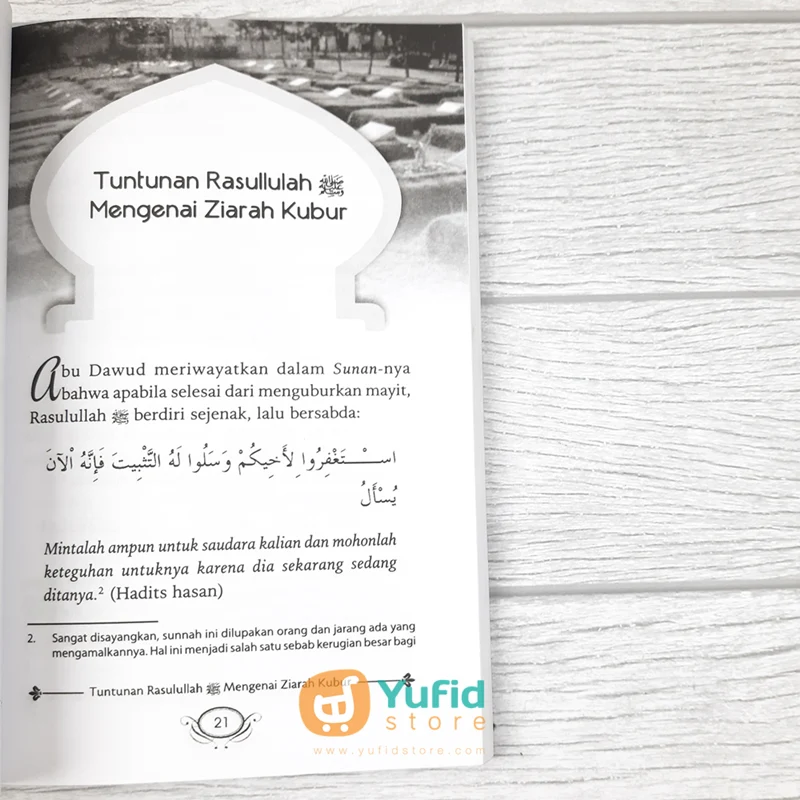 Tuntunan Rasullulah ﷺ
Mengenai Ziarah Kubur
Abu Dawud meriwayatkan dalam Sunan-nya
bahwa apabila selesai dari menguburkan mayit,
Rasulullah ﷺ berdiri sejenak, lalu bersabda:
اسْـــتَغْفِرُوا لِأَخِيكُمْ وَسَلُوا لَهُ التَّثْبِيتَ فَإِنَّهُ الْآنَ
يُسْأَلُ
Mintalah ampun untuk saudara kalian dan mohonlah
keteguhan untuknya karena dia sekarang sedang
ditanya.² (Hadits hasan)
2. Sangat disayangkan, sunnah ini dilupakan orang dan jarang ada yang
mengamalkannya. Hal ini menjadi salah satu sebab kerugian besar bagi
Tuntunan Rasulullah ﷺ Mengenai Ziarah Kubur
21
Yufid
store
www.yufidstore.com